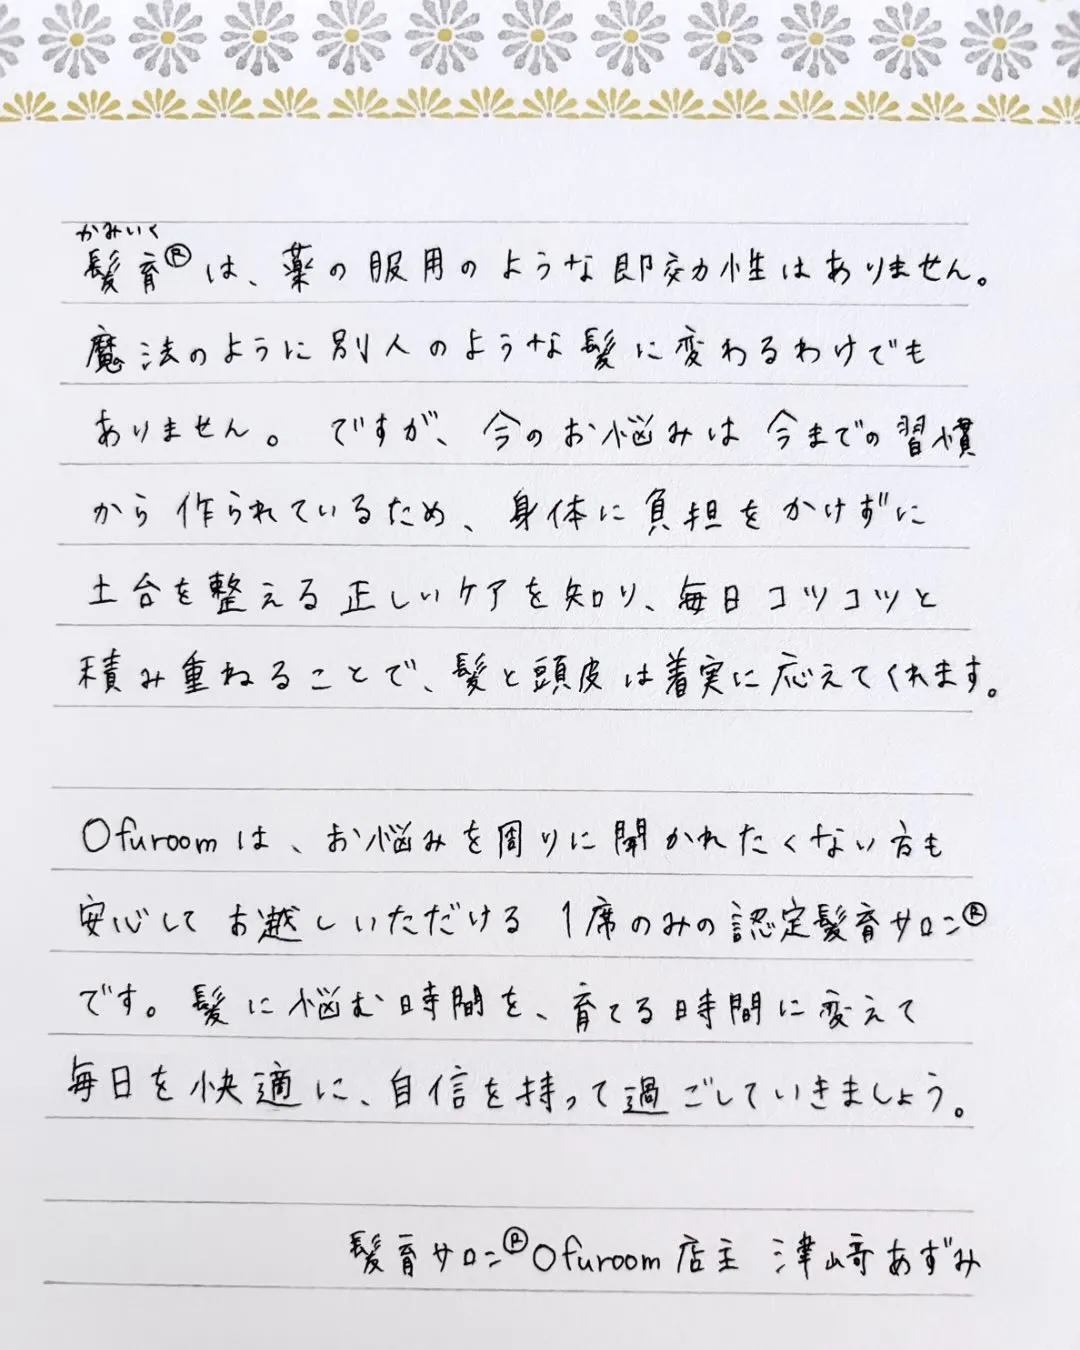 かみいく
髪育®は、薬の服用のような即効力性はありません。
魔法のように別人のような髪に変わるわけでも
ありません。ですが、今のお悩みは今までの習慣
から作られているため、身体に負担をかけずに
土台を整える正しいケアを知り、毎日コツコツと
積み重ねることで、髪と頭皮は着実に応えてくれます。
Ofuroomは、お悩みを周りに聞かれたくない方も
安心してお越しいただける1席のみの認定髪育サロン®
です。髪に悩む時間を、育てる時間に変えて
毎日を快適に、自信を持って過ごしていきましょう。
髪育サロン®Ofuroom店主 津﨑あずみ